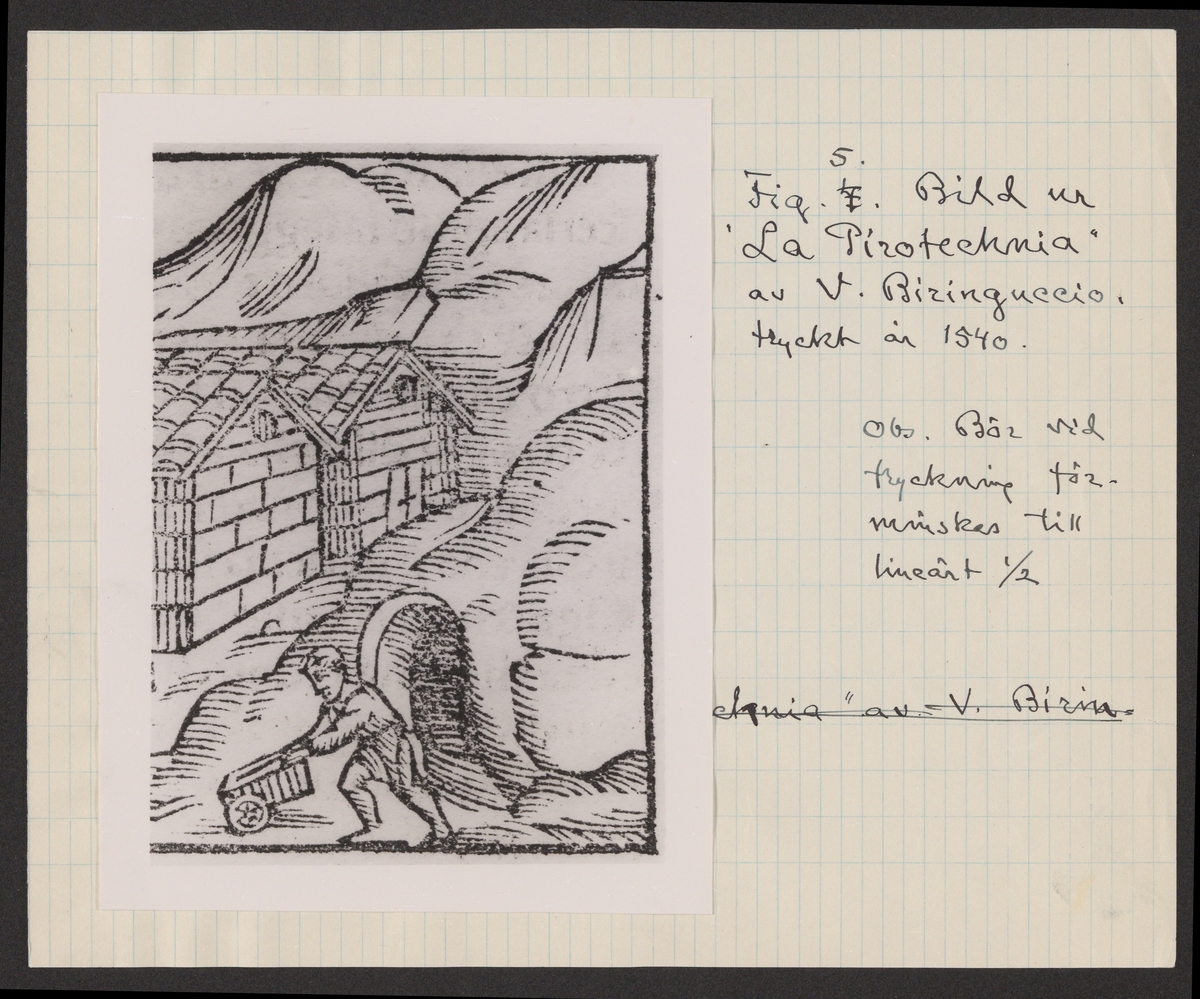 5.
Fig. 7. Bild ur
"La Pirotechnia"
av V. Biringuccio.
tryckt år 1540.
Obs. Bör vid
tryckning för-
minskas till
lineärt 1/2
chnia" av V. Birin-